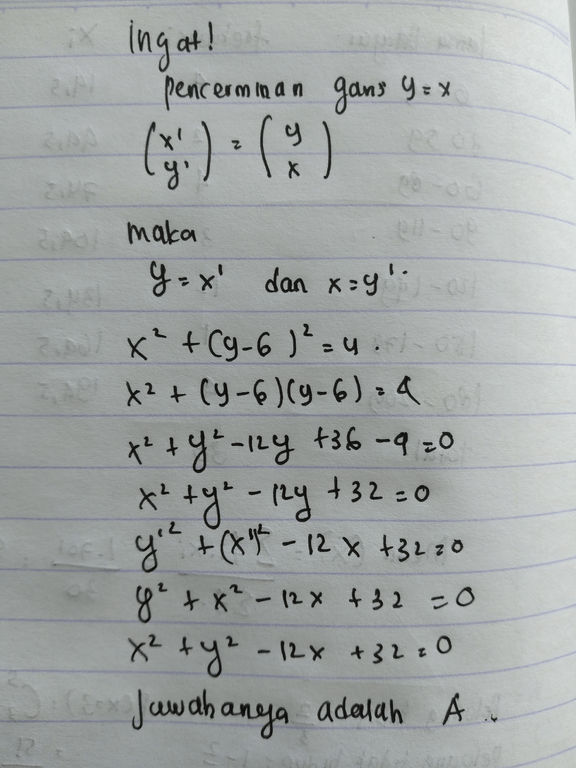 Ingat!
pencerminan garis y = x
(x' y') = (y x)
maka
y = x' dan x = y'.
x² + (y-6)² = 4.
x² + (y-6)(y-6) = 4
x² + y² - 12y + 36 - 4 = 0
x² + y² - 12y + 32 = 0
y'² + (x')² - 12x + 32 = 0
y² + x² - 12x + 32 = 0
x² + y² - 12x + 32 = 0
Jawabanya adalah A.